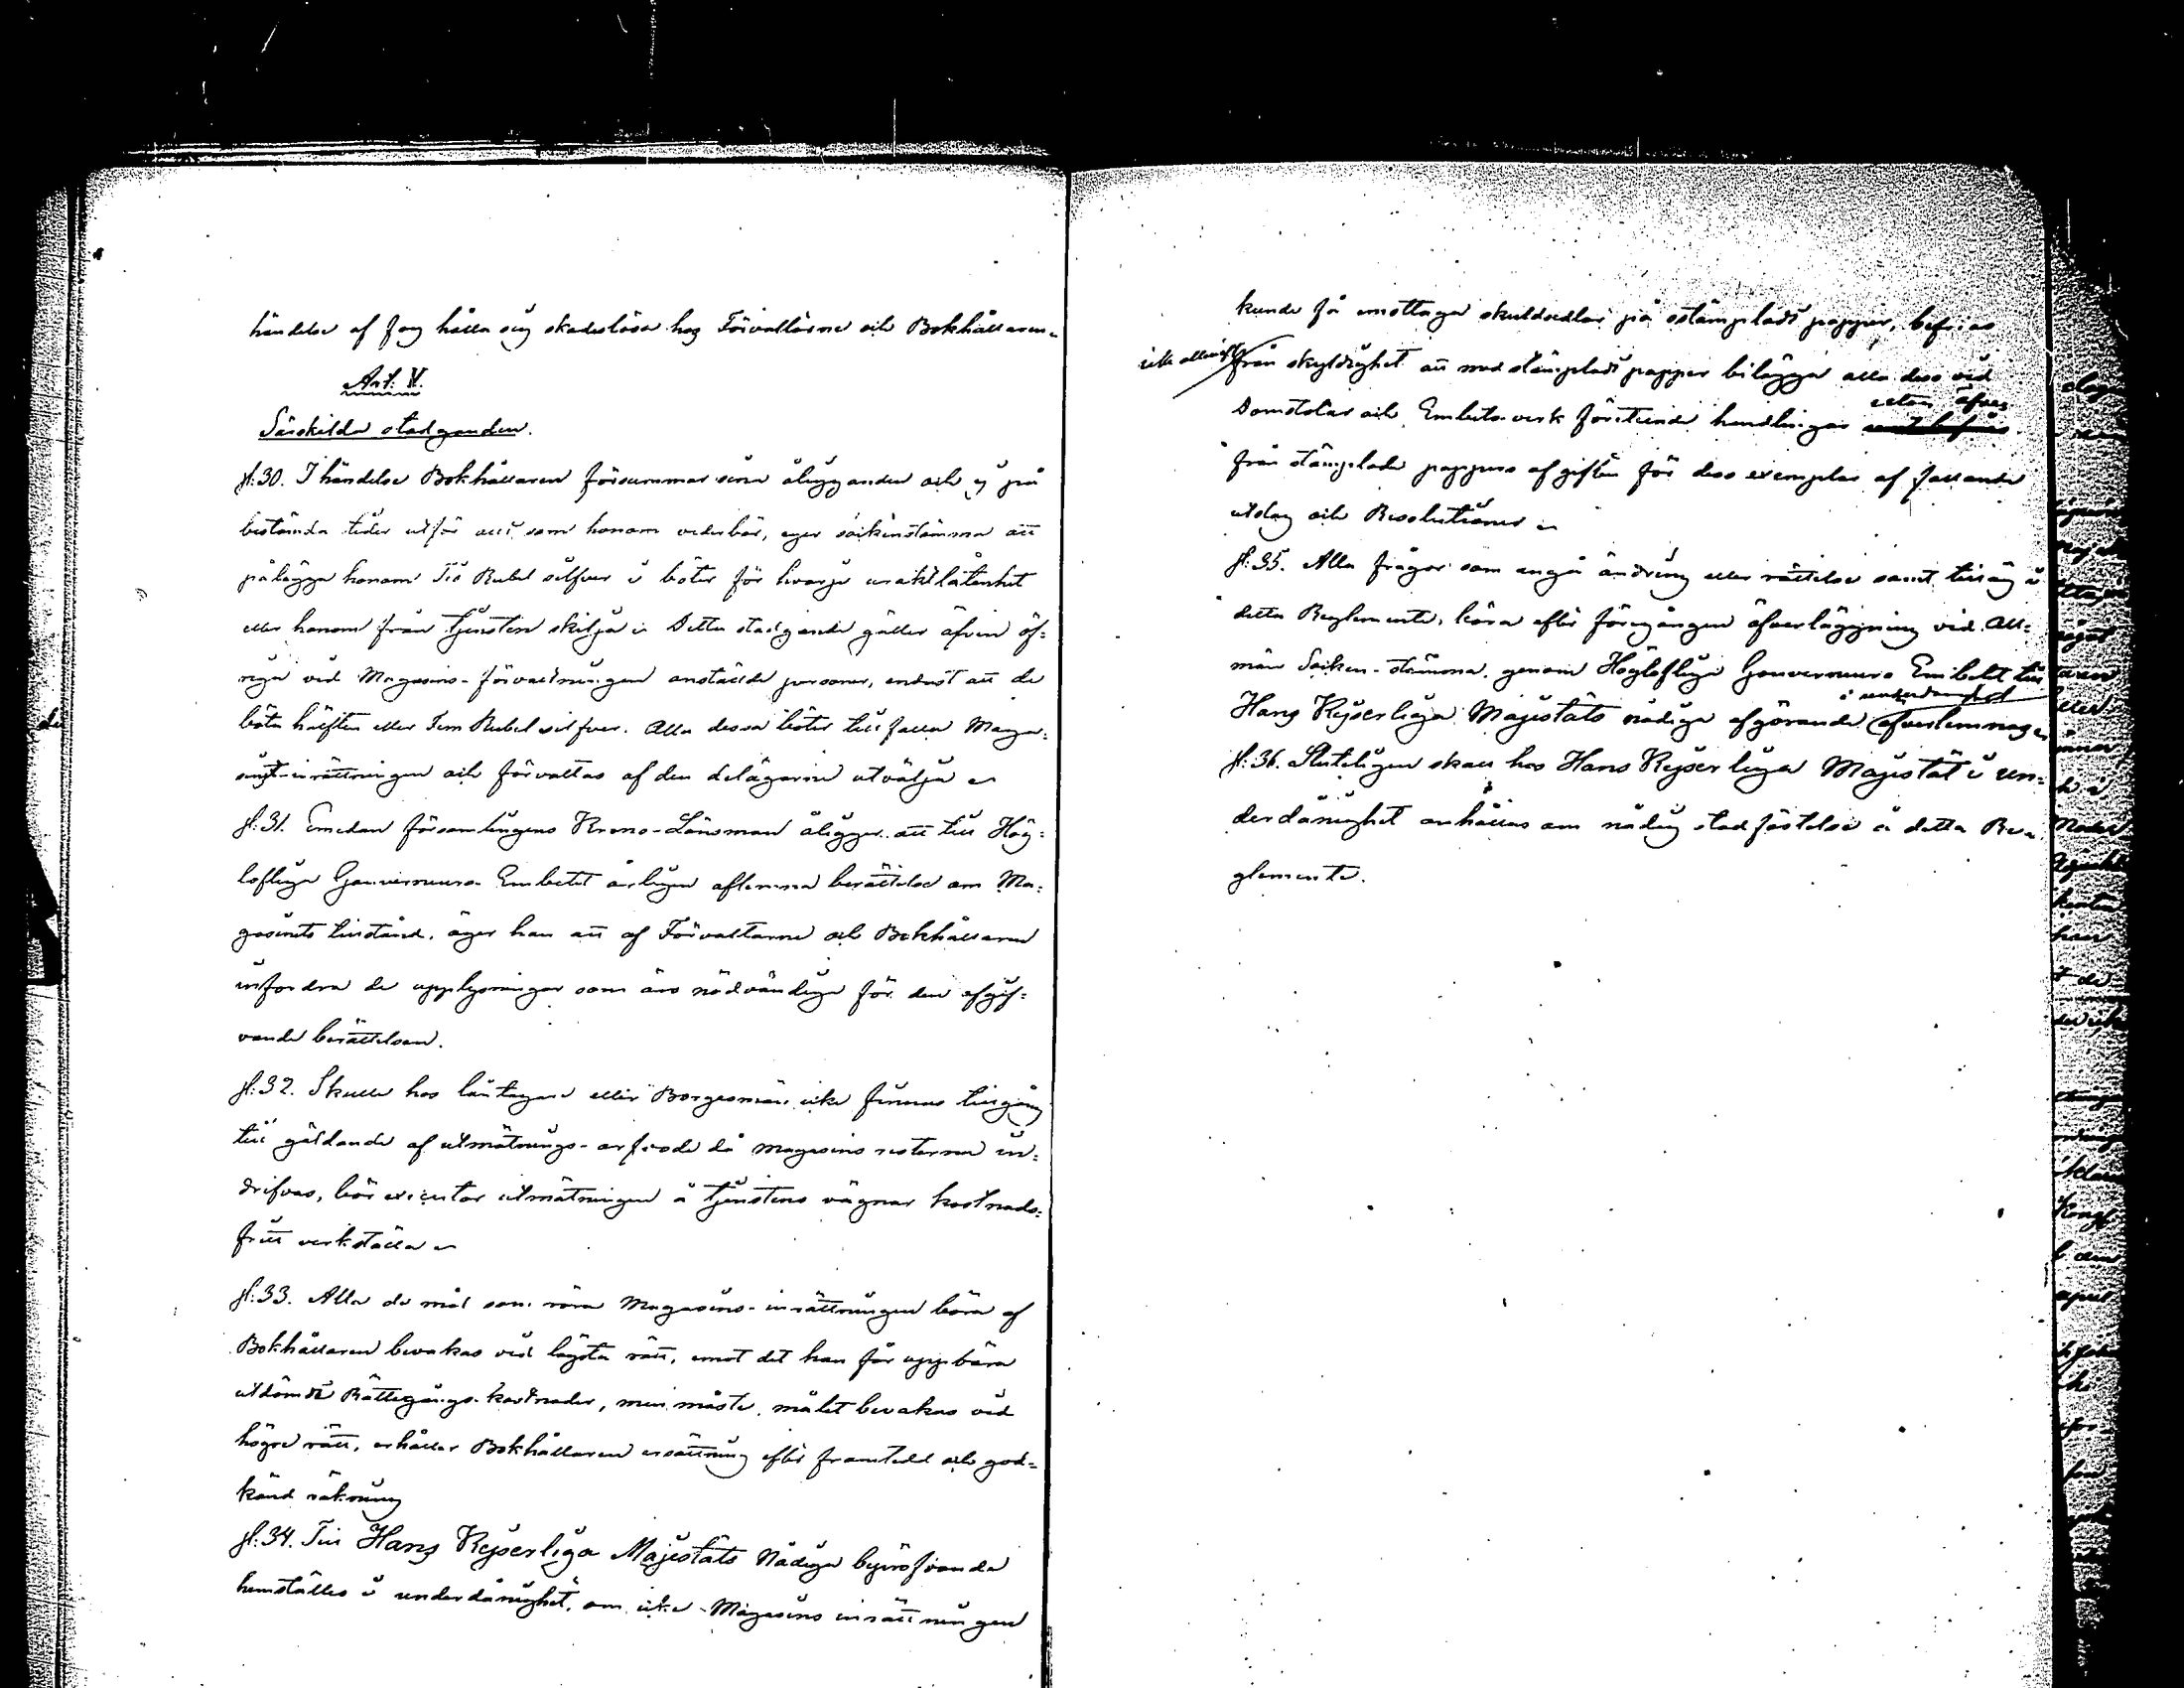 händelse af söy hålla sig skadeslösa hos Förvaltarne och Bokhållaren.
Art: V.
Särskilda stadganden.
§:30. I händelse Bokhållaren försummar sina åligganden och ej på
bestämda tider utför allt som honom vederbör, eger sockenstämma att
pålägga honom Tio Rubel silfver i böter för hvarje uraktlåtenhet
eller honom från tjensten skilja. Detta stadgande gäller äfven öf=
riga vid Magasins-förvaltningen anställde personer, endast att de
böta hälften eller Fem Rubel silfver. Alla dessa böter tillfalla Maga=
sins-inrättningen och förvaltas af den delägarne utvälja
§:31. Emedan församlingens Krono-Länsman åligger att till Hög=
lofliga Gouverneurs Embetet årligen aflemna berättelse om Ma=
gasinets tillstånd, äger han att af Förvaltarne och Bokhållaren
infordra de upplysningar som äro nödvändiga för den afgif=
vande berättelsen.
§:32. Skulle hos låntagare eller Borgesmän icke finnas tillgång
till gäldande af utmätnings-arfvode då magasins resterna in=
drifvas, bör executor utmätningen å tjenstens vägnar kostnads=
fritt verkställa
§:33. Alla de mål som röra Magasins-inrättningen böra af
Bokhållaren bevakas vid lägsta rätt, emot det han får uppbära
utdömde Rättegångs-kostnader, men måste målet bevakas vid
högre rätt, erhåller Bokhållaren ersättning efter framtedd och god=
känd räkning
§:34. Till Hans Kejserliga Majestäts Nådiga bepröfvande
hemställes i underdånighet, om icke Magasins inrättningen
kunde få emottaga skuldsedlar på ostämpladt papper, befrias
icke allenast från skyldighet att med stämpladt papper belägga alla dess vid
Domstolar och Embetsverk företeende handlingar utan äfven
från stämplade pappers afgiften för dess exemplar af fallande
utslag och Resolutioner
§:35. Alla frågor som angå ändring eller rättelse samt tillägg i
detta Reglemente, böra efter föregången öfverläggning vid All=
män Socken-stämma, genom Höglofliga Gouverneurs Embetet till
Hans Kejserliga Majestäts nådiga afgörande i underdånighet öfverlemnas
§:36. Slutligen skall hos Hans Kejserliga Majestät i un=
derdånighet anhållas om nådig stadfästelse å detta Re=
glemente.